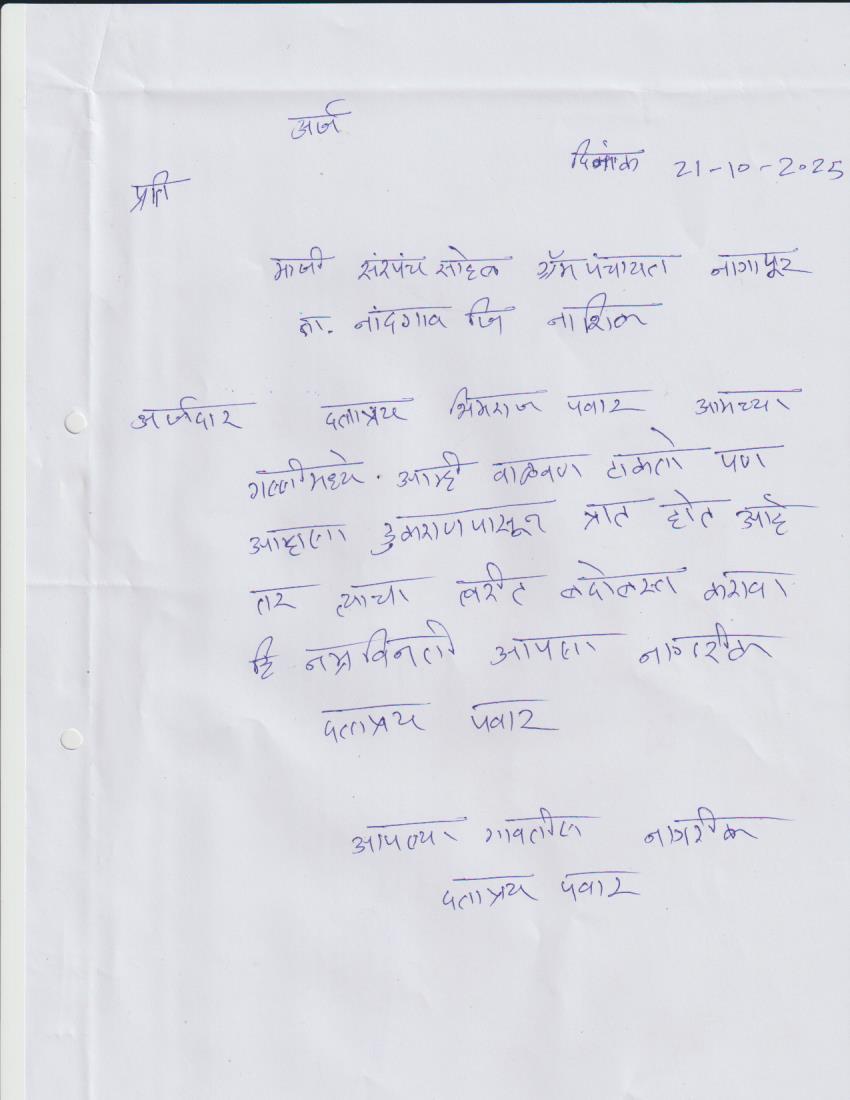 अर्ज
दिनांक 21-10-2025
प्रति
माजी संरपंच साहेब ग्रॅम पंचायत नागापूर
ता. नांदगाव जि नाशिक
अर्जदार दत्तात्रय भिमराज पवार आमच्या
गल्लीमध्ये. आम्ही वाळवण टाकतो पण
आम्हाला डुकरापासून त्रात होत आहे
तर त्याचा त्वरीत बदोबस्त करावा
हि नम्र विनती आपला नागरीक
दत्तात्रय पवार
आपल्या गावतील नागरीक
दत्तात्रय पवार